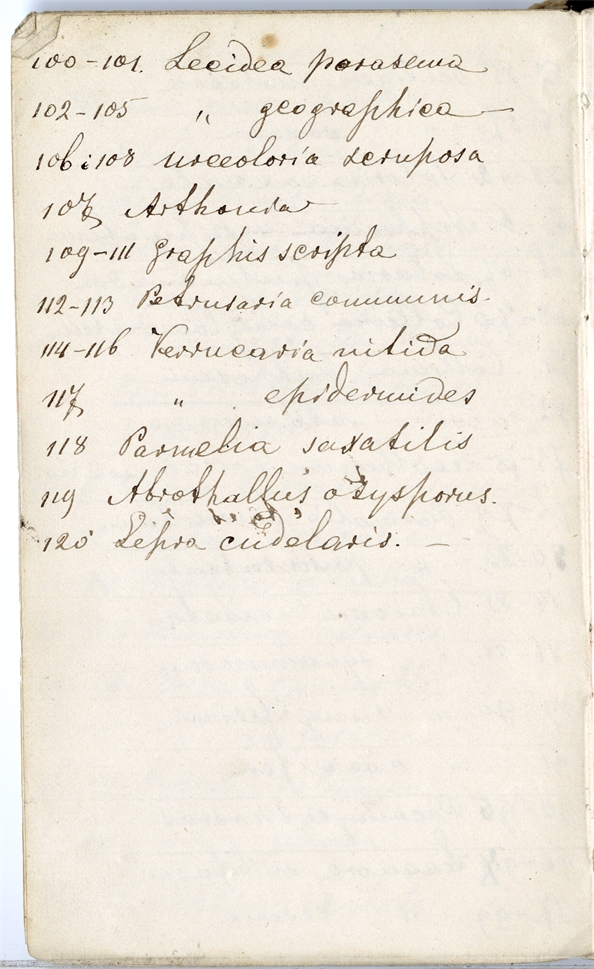 100-101. Lecidea parasema
102-105 " geographica —
106 : 108 urceolaria scruposa
107 Arthonia
109-111 graphis scripta
112-113 Petrusaria communis.
114-116 Verrucaria nitida
117 " epidermides
118 Parmelia saxatilis
119 Abrothallus oxysporus.
120 Lepra cudelaris. —